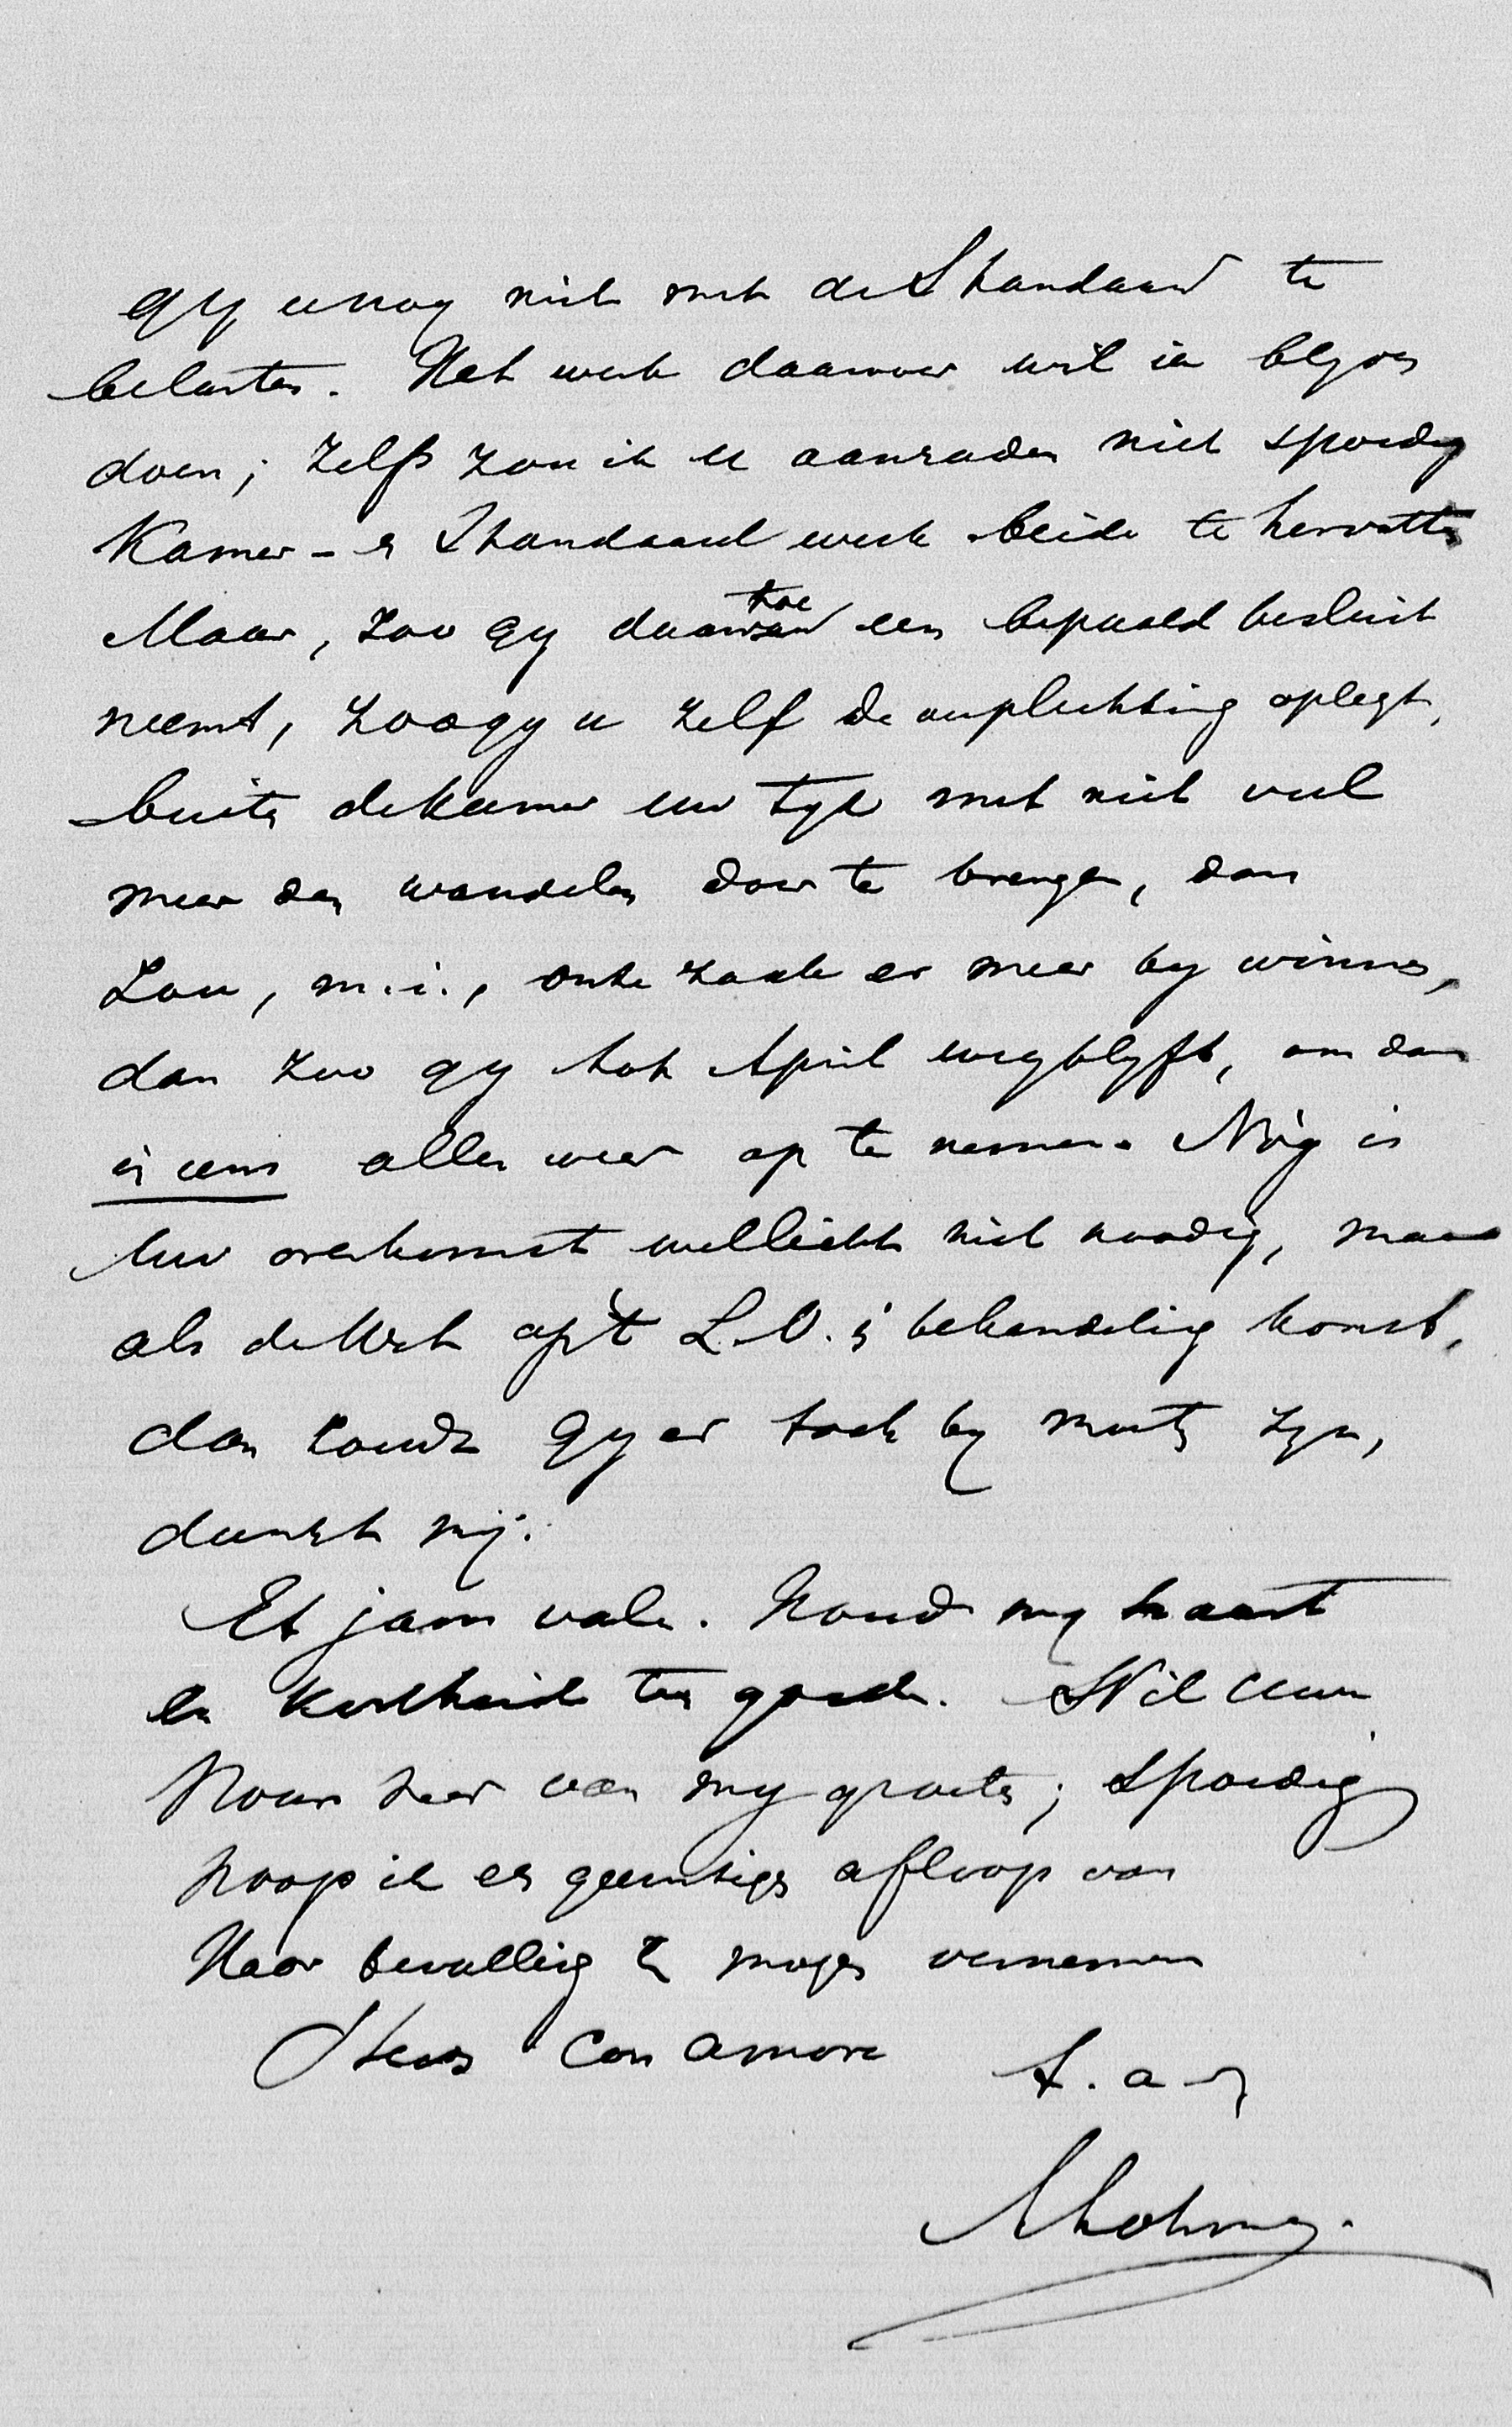 gy u nog niet met de Standaard te
belasten. Het werk daarvoor wil ik blyven
doen; zelfs zou ik u aanraden niet spoedig
Kamer- en Standaard werk beide te hervatten
Maar, zoo gy daartoe een bepaald besluit
neemt, zoo gy u zelf de verplichting oplegt,
buiten de Kamer uw tyd met niet veel
meer dan wandelen door te brengen, dan
zou, m.i., onze zaak er meer by winnen,
dan zoo gy tot April wegblyft, om dan
in eens alles weer op te nemen. Nòg is
uw overkomst wellicht niet noodig, maar
als de Wet op 't L.O. in behandeling komt,
dan zoudt gy er toch by moeten zyn,
dunkt mij.
Et jam vale. Houd my haast
en kortheid ten goede. Wil uwe
Vrouw zeer van my groeten; spoedig
hoop ik een gunstigen afloop van
Haar bevalling te mogen vernemen
Steeds con amore
t. a v
AFLohman.